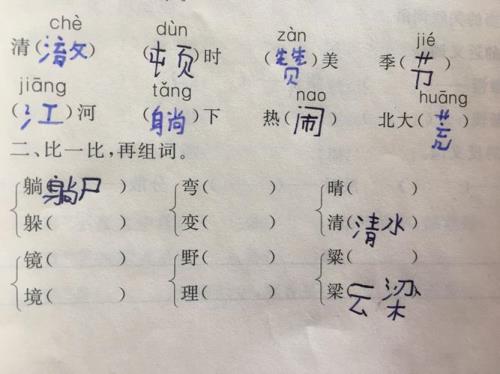 chè dùn zàn jié
清(澈) (顿)时 (赞)美 季(节)
jiāng tǎng nao huāng
(江)河 (躺)下 热(闹) 北大(荒)
二、比一比,再组词。
躺(躺尸) 弯( ) 晴( )
躲( ) 变( ) 清(清水)
镜( ) 野( ) 粱( )
境( ) 理( ) 梁(云梁)